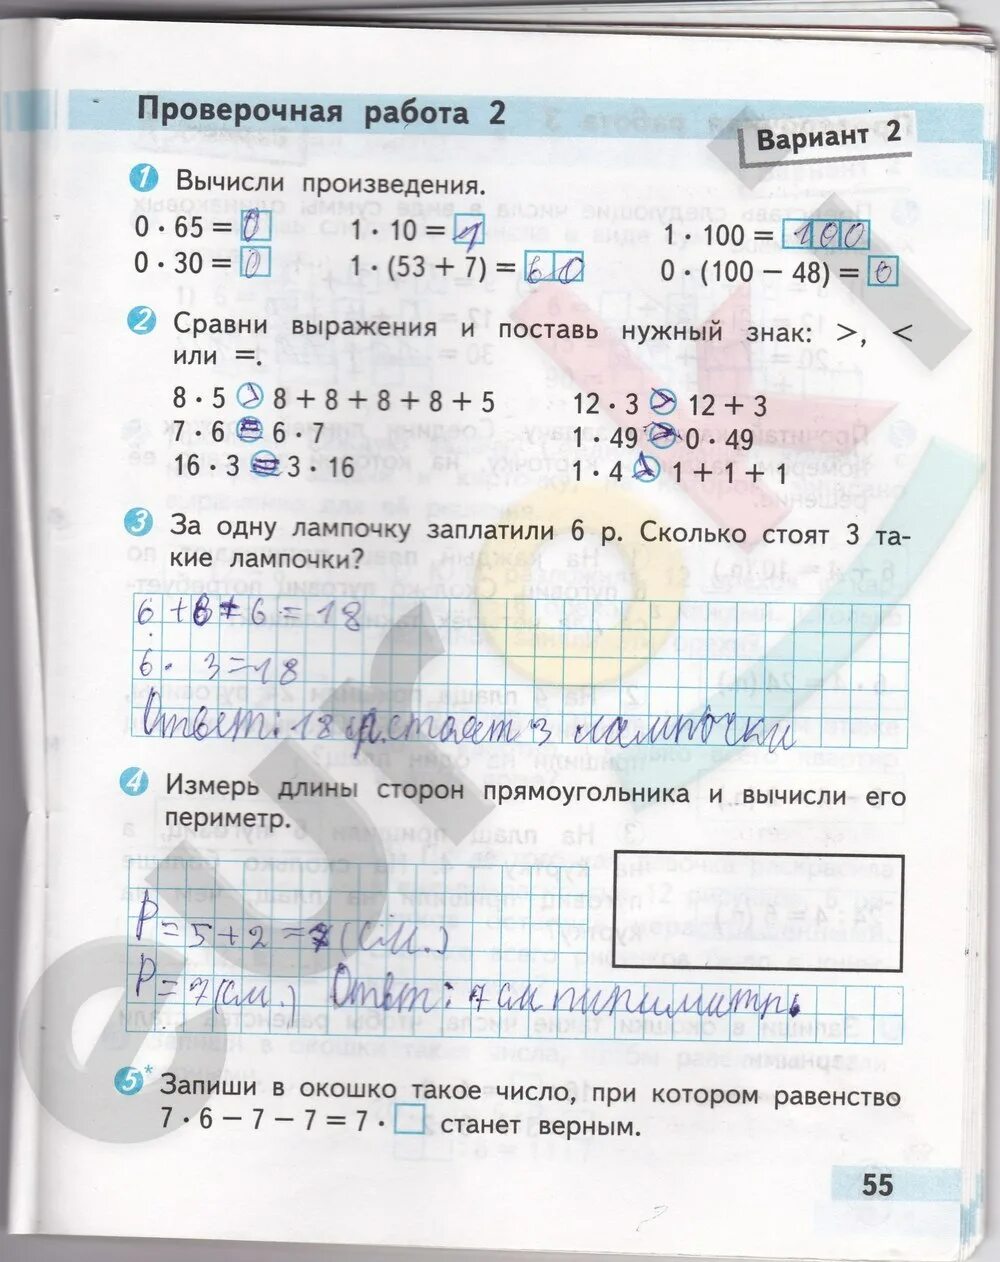 Проверочная работа 2
Вариант 2
1 Вычисли произведения.
0 · 65 = 0 1 · 10 = 1 1 · 100 = 100
0 · 30 = 0 1 · (53 + 7) = 60 0 · (100 − 48) = 0
2 Сравни выражения и поставь нужный знак: >, <
или =.
8 · 5 > 8 + 8 + 8 + 8 + 5 12 · 3 > 12 + 3
7 · 6 = 6 · 7 1 · 49 > 0 · 49
16 · 3 = 3 · 16 1 · 4 > 1 + 1 + 1
3 За одну лампочку заплатили 6 р. Сколько стоят 3 та-
кие лампочки?
6 + 6 + 6 = 18
6 · 3 = 18
Ответ: 18 р. стоят 3 лампочки
4 Измерь длины сторон прямоугольника и вычисли его
периметр.
P = 5 + 2 = 7 (см.)
P = 7 (см.) Ответ: 7 см пириматр.
5* Запиши в окошко такое число, при котором равенство
7 · 6 − 7 − 7 = 7 · □ станет верным.
55
euroki